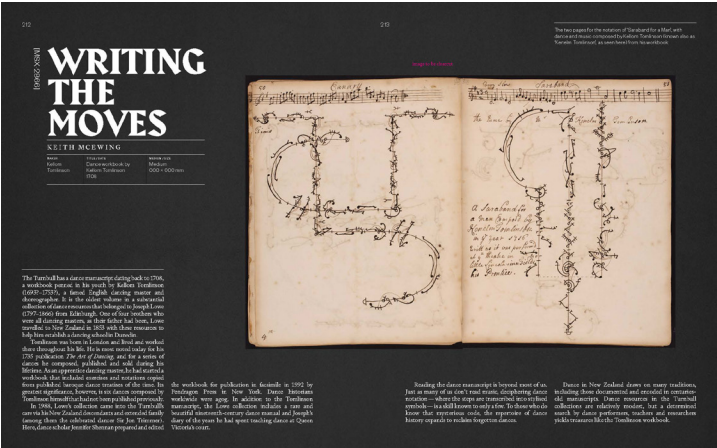 212
213
The two pages for the notation of 'Saraband for a Man', with
dance and music composed by Kellom Tomlinson (known also as
'Kenelm Tomlinson', as seen here) from his workbook.
WRITING
THE
MOVES
KEITH MCEWING
Kellom
Tomlinson
Dance workbook by
Kellom Tomlinson
1708
Medium
000 × 000 mm
The Turnbull has a dance manuscript dating back to 1708,
a workbook penned in his youth by Kellom Tomlinson
(1693?–1753?), a famed English dancing master and
choreographer. It is the oldest volume in a substantial
collection of dance resources that belonged to Joseph Lowe
(1797–1866) from Edinburgh. One of four brothers who
were all dancing masters, as their father had been, Lowe
travelled to New Zealand in 1853 with these resources to
help him establish a dancing school in Dunedin.
Tomlinson was born in London and lived and worked
there throughout his life. He is most noted today for his
1735 publication The Art of Dancing, and for a series of
dances he composed, published and sold during his
lifetime. As an apprentice dancing master, he had started a
workbook that included exercises and notations copied
from published baroque dance treatises of the time. Its
greatest significance, however, is six dances composed by
Tomlinson himself that had not been published previously.
In 1988, Lowe's collection came into the Turnbull's
care via his New Zealand descendants and extended family
(among them the celebrated dancer Sir Jon Trimmer).
Here, dance scholar Jennifer Shennan prepared and edited
the workbook for publication in facsimile in 1992 by
Pendragon Press in New York. Dance historians
worldwide were agog. In addition to the Tomlinson
manuscript, the Lowe collection includes a rare and
beautiful nineteenth-century dance manual and Joseph's
diary of the years he had spent teaching dance at Queen
Victoria's court.
Reading the dance manuscript is beyond most of us.
Just as many of us don't read music, deciphering dance
notation — where the steps are transcribed into stylised
symbols — is a skill known to only a few. To those who do
know that mysterious code, the repertoire of dance
history expands to reclaim forgotten dances.
Dance in New Zealand draws on many traditions,
including those documented and encoded in centuries-
old manuscripts. Dance resources in the Turnbull
collections are relatively modest, but a determined
search by dance performers, teachers and researchers
yields treasures like the Tomlinson workbook.